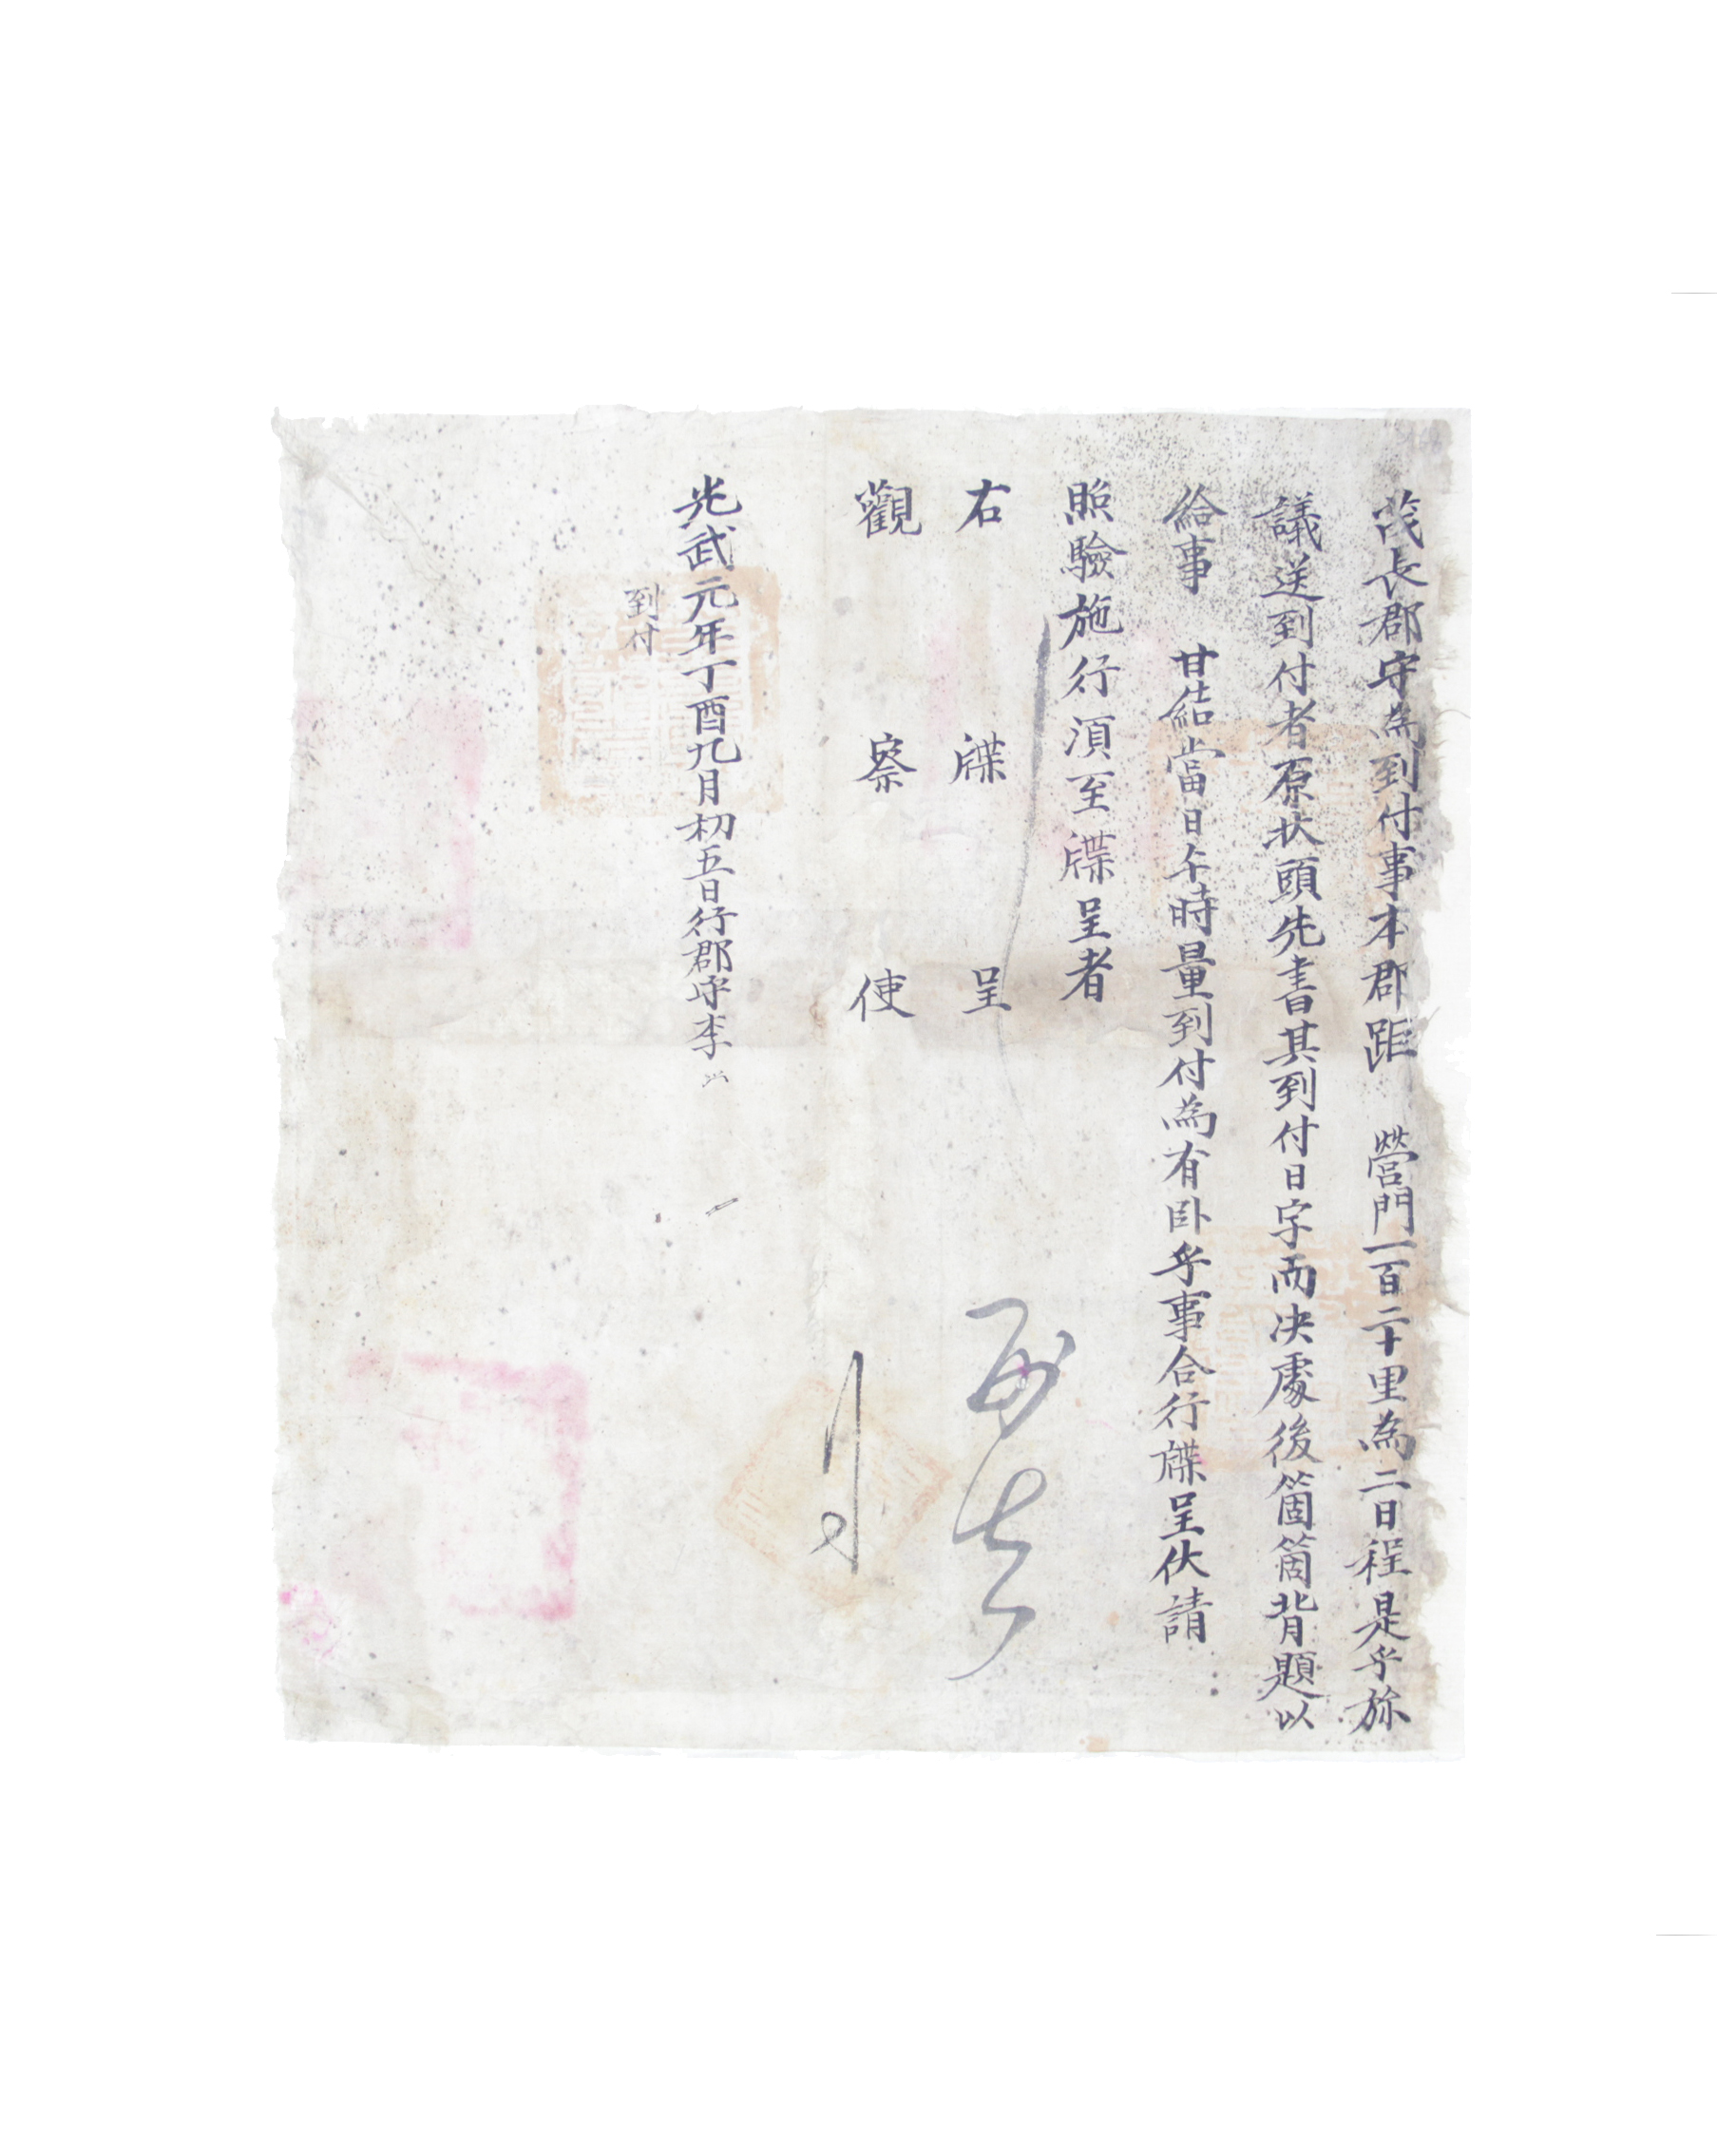 茂長郡守為到付事本郡距 營門一百二十里為二日程是乎旀
議送到付者原状頭先書其到付日字而决處後箇箇背題以
給事 甘結當日午時量到付為有卧乎事合行牒呈伏請
照驗施行湏至牒呈者
右 牒 呈
觀 察 使
光武元年丁酉九月初五日行郡守李
到付